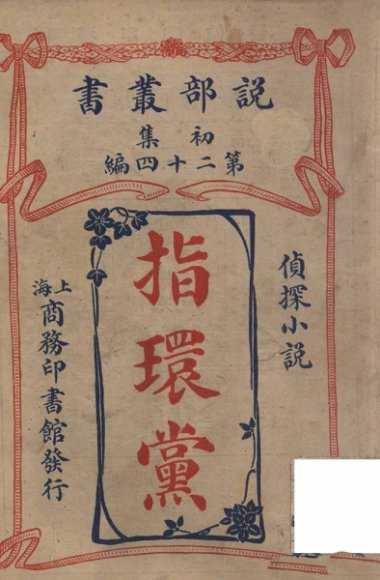 說部叢書
初集
第二十四編
偵探小說
指環黨
上海
商務印書館發行